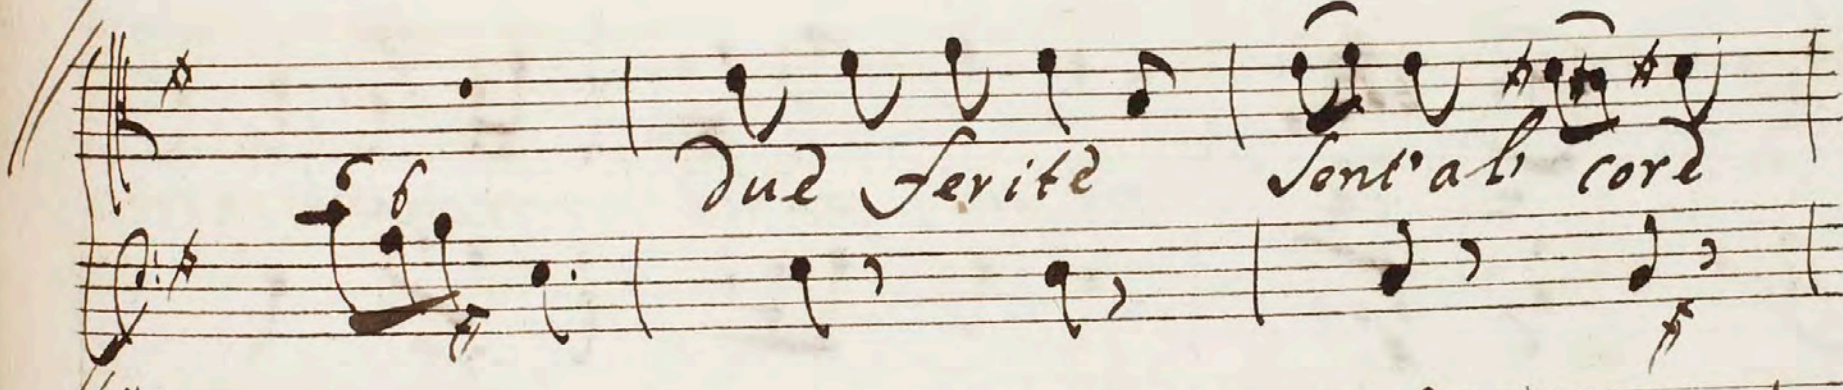 6 6
due ferite sent' al' core